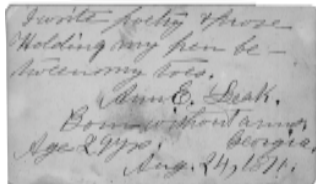 I write poetry & prose
Holding my pen be-
tween my toes.
Ann E. Leak.
Born without arms.
Georgia.
Age 29 yrs.
Aug. 24, 1871.